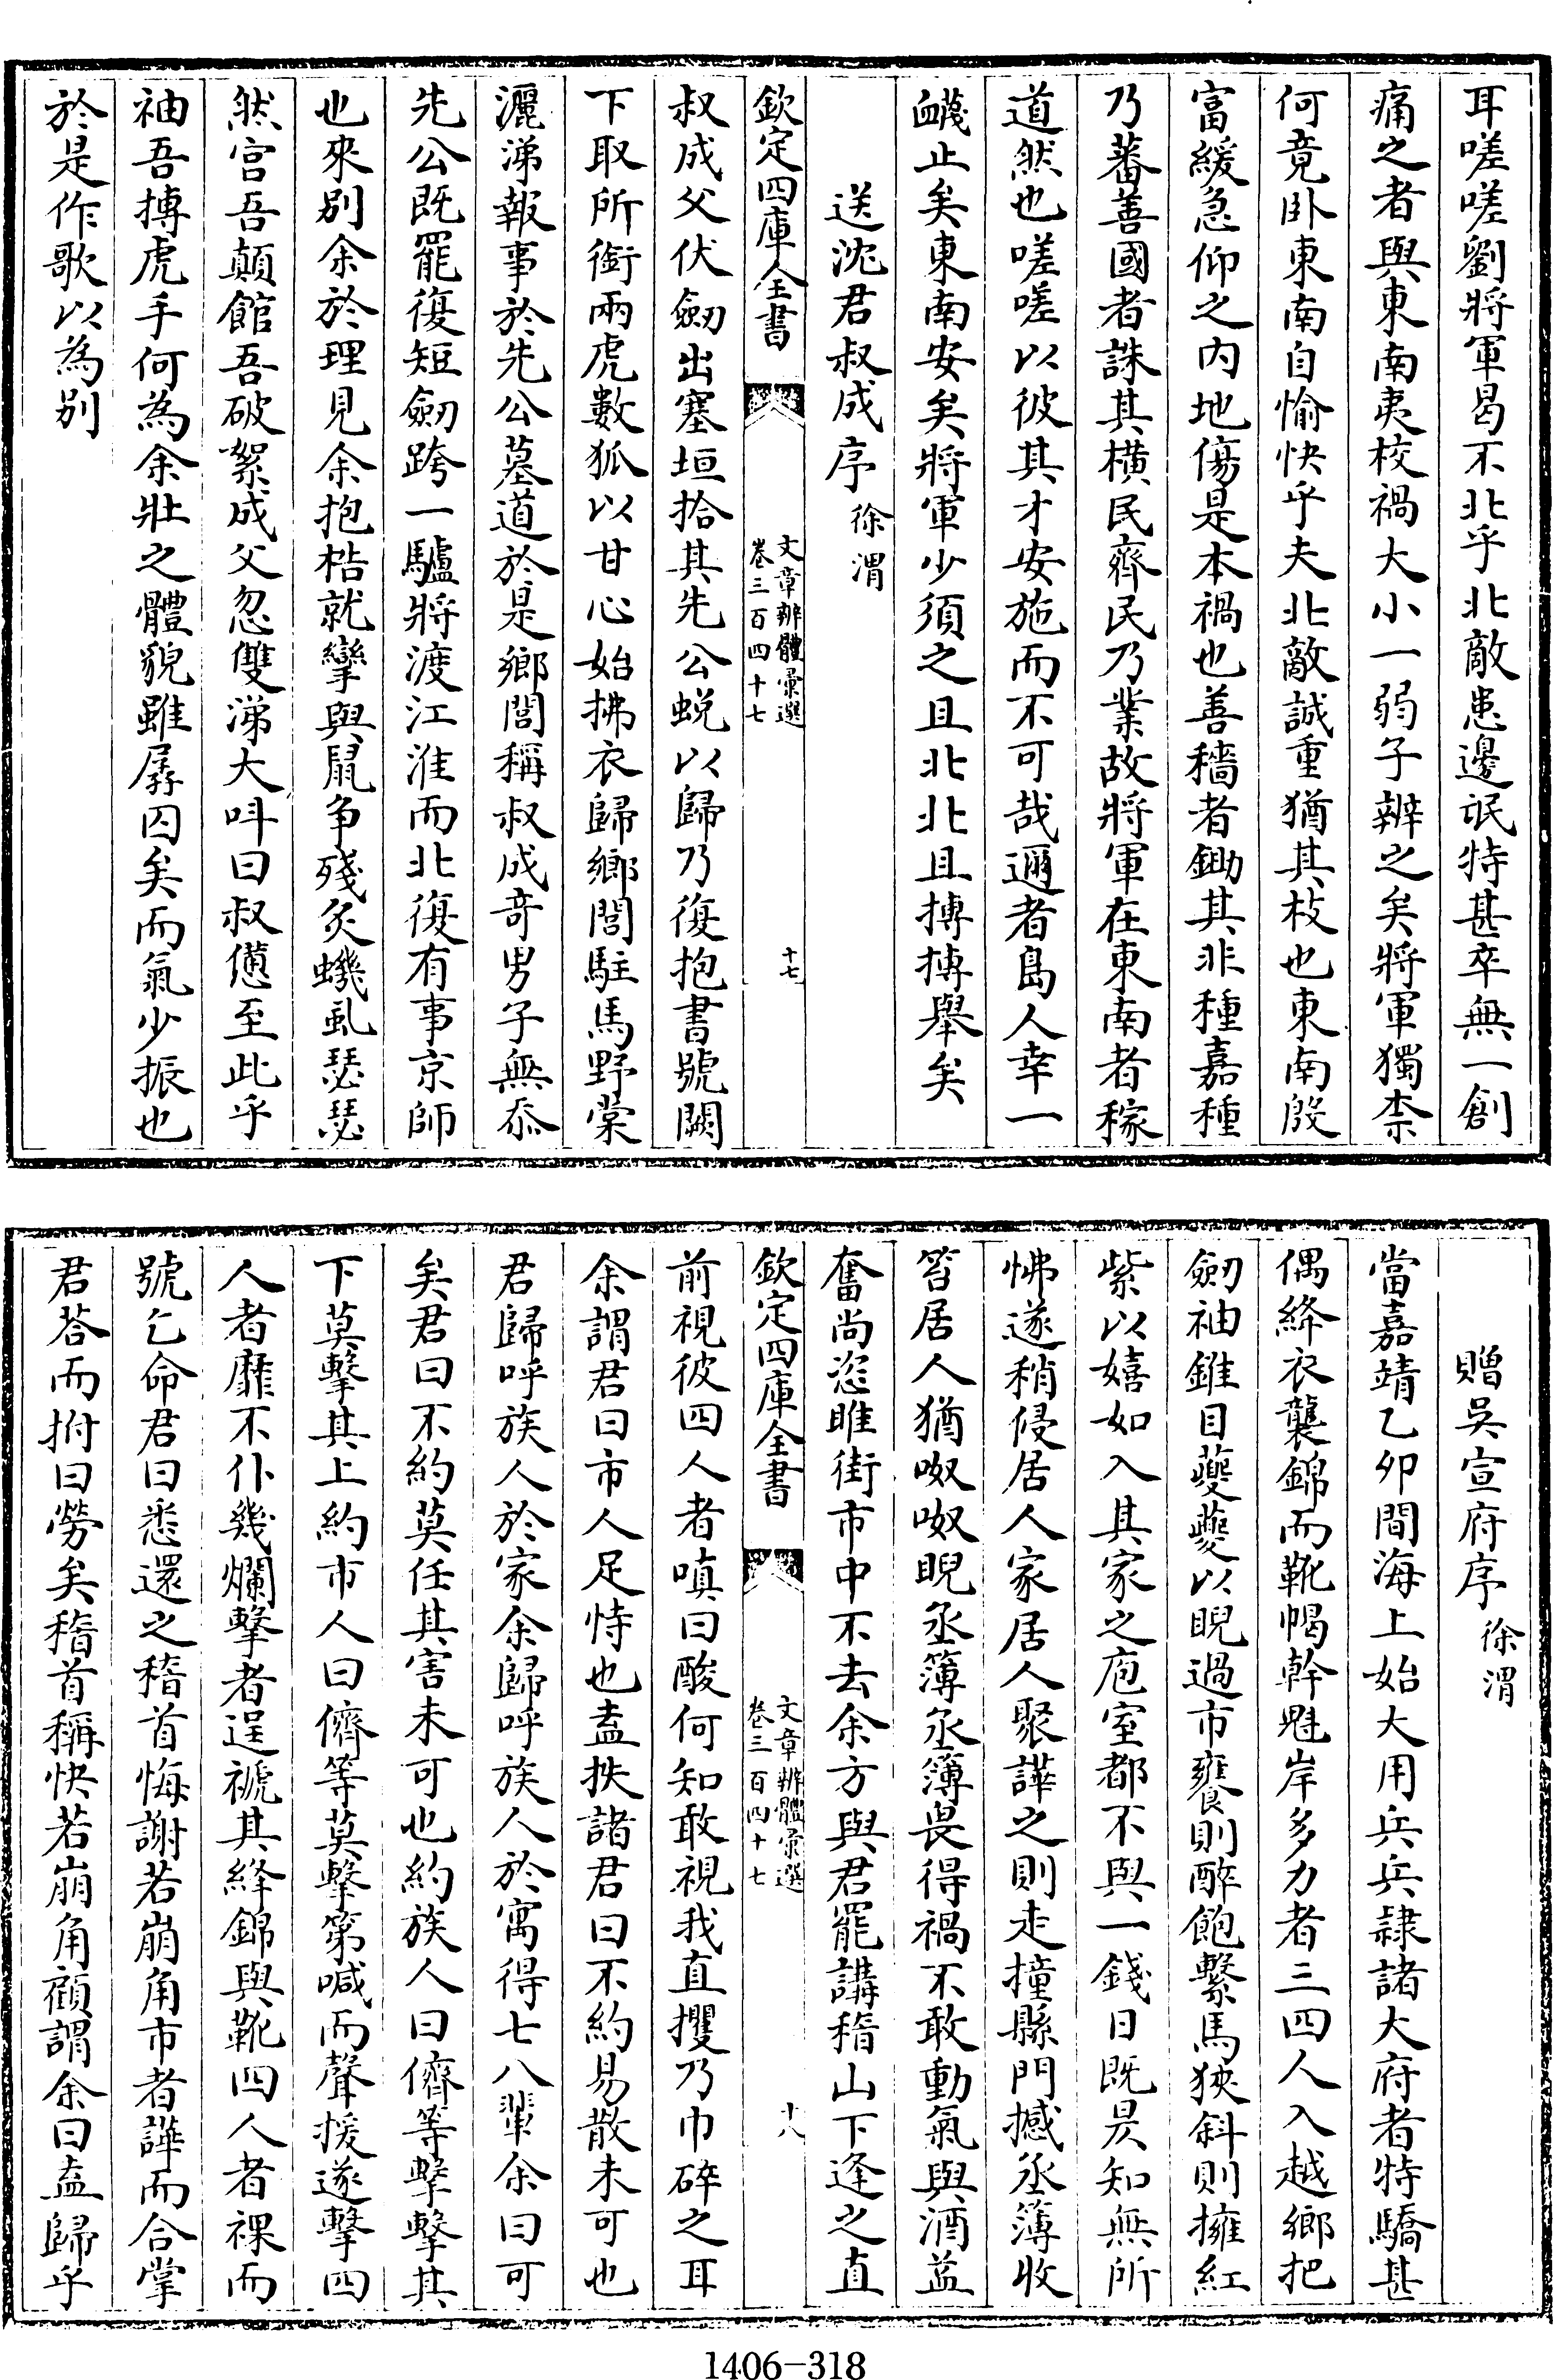 耳嗟嗟劉將軍曷不北乎北敵患邊氓特甚卒無一創
痛之者與東南夷校禍大小一弱子辨之矣將軍獨柰
何竟卧東南自愉快乎夫北敵誠重猶其枝也東南殷
富緩急仰之内地傷是本禍也善穡者鋤其非種嘉種
乃蕃善國者誅其橫民齊民乃業故將軍在東南者稼
道然也嗟嗟以彼其才安施而不可哉邇者島人幸一
衊止矣東南安矣將軍少須之且北北且搏搏舉矣
送沈君叔成序徐渭
欽定四庫全書
文章辨體彙選
卷三百四十七
十七
叔成父伏劒出塞垣拾其先公蛻以歸乃復抱書號闕
下取所銜兩虎數狐以甘心始拂衣歸鄉閭駐馬野棠
灑涕報事於先公墓道於是鄉閭稱叔成竒男子無忝
先公既罷復短劒跨一驢將渡江淮而北復有事京師
也來别余於理見余抱梏就攣與鼠争殘炙蟣虱瑟瑟
然宫吾顛館吾破絮成父忽雙涕大呌曰叔憊至此乎
袖吾搏虎手何為余壯之體貌雖孱囚矣而氣少振也
於是作歌以為别
贈吳宣府序徐渭
當嘉靖乙夘間海上始大用兵兵隷諸大府者特驕甚
偶絳衣襲錦而靴幘幹魁岸多力者三四人入越鄉把
劒袖錐目虁虁以睨過市饔則醉飽繫馬狹斜則擁紅
紫以嬉如入其家之庖室都不與一錢日既昃知無所
怫遂稍侵居人家居人聚譁之則走撞縣門撼丞簿收
笞居人猶呶呶睨丞簿丞簿畏得禍不敢動氣與酒益
奮尚恣睢街市中不去余方與君罷講稽山下逢之直
欽定四庫全書
文章辨體彙選
卷三百四十七
十八
前視彼四人者嗔曰酸何知敢視我直攫乃巾碎之耳
余謂君曰市人足恃也盍抶諸君曰不約易散未可也
君歸呼族人於家余歸呼族人於寓得七八輩余曰可
矣君曰不約莫任其害未可也約族人曰儕等擊擊其
下莫擊其上約市人曰儕等莫擊第喊而聲援遂擊四
人者靡不仆幾爛擊者逞褫其絳錦與靴四人者裸而
號乞命君曰悉還之稽首悔謝若崩角市者譁而合掌
君荅而拊曰勞矣稽首稱快若崩角顧謂余曰盍歸乎
1406-318